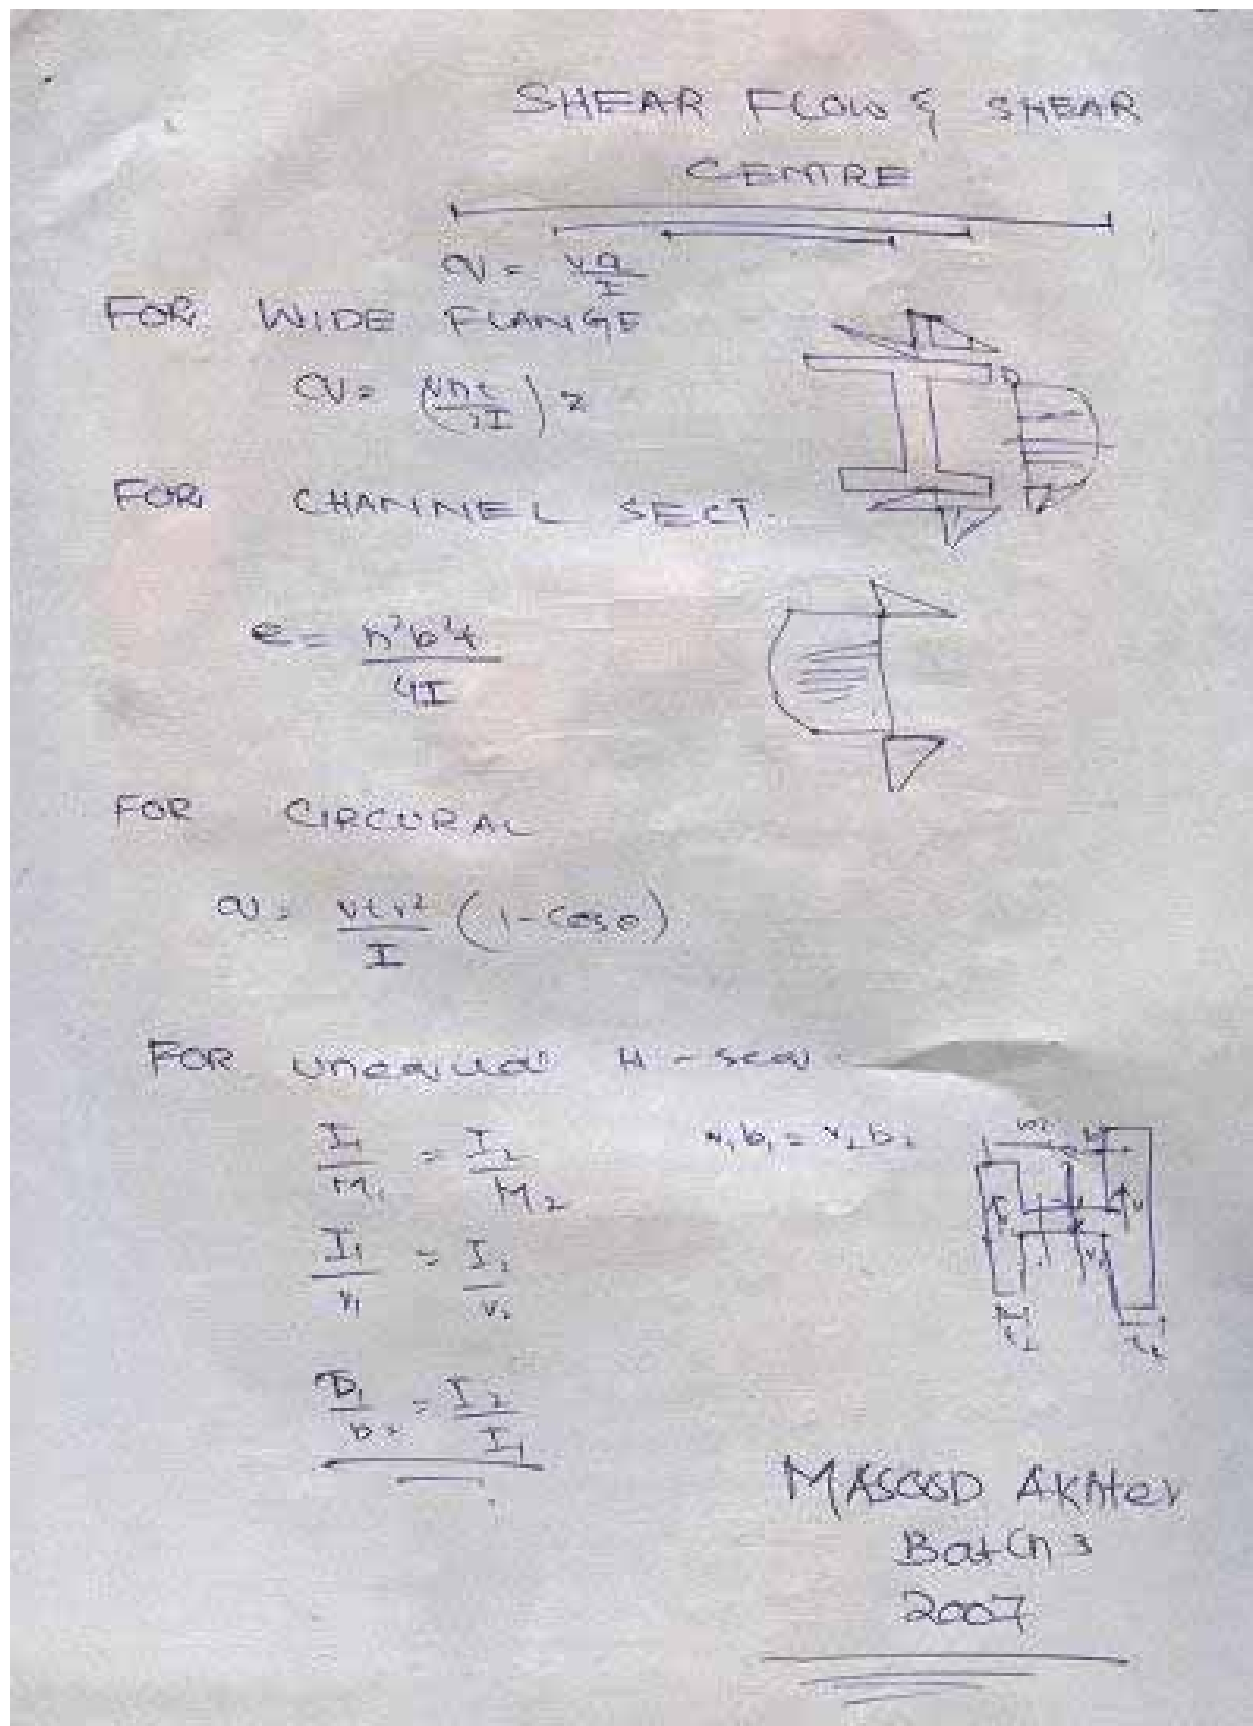 SHEAR FLOW & SHEAR
CENTRE
q = VQ/I
FOR WIDE FLANGE
q = (Vht/2I) x
FOR CHANNEL SECT.
e = h²b²t/4I
FOR CIRCURAL
q = Vtr²/I (1-cosθ)
FOR unequal H-
I₁/M₁ = I₂/M₂ v₁b₁ = v₂b₂
I₁/v₁ = I₂/v₂
b₁/b₂ = I₂/I₁
MASOOD AKHter
BatCh 3
2007